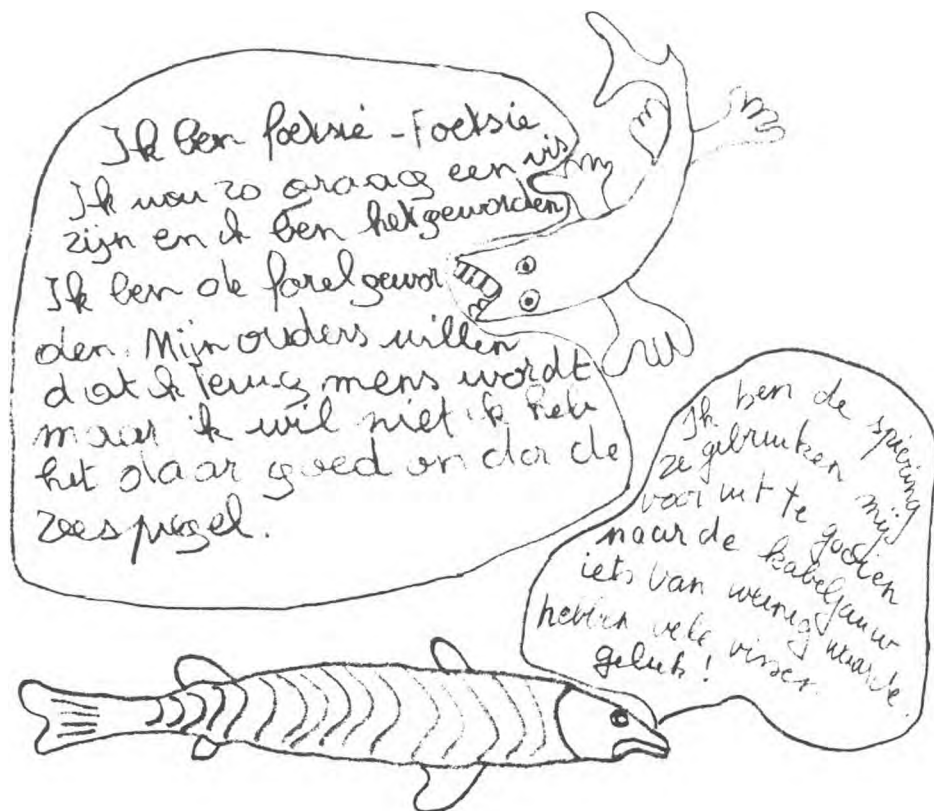 Ik ben foetsie - Foetsie
Ik wou zo graag een vis
zijn en ik ben het geworden
Ik ben de forel gewor
den. Mijn ouders willen
dat ik terug mens wordt
maar ik wil niet ik heb
het daar goed on der de
zeespiegel.
Ik ben de spiering
ze gebruiken mij
voor uit te gooien
naar de kabeljauw
iets van weinig waarde
hebben vele vissen
geluk!